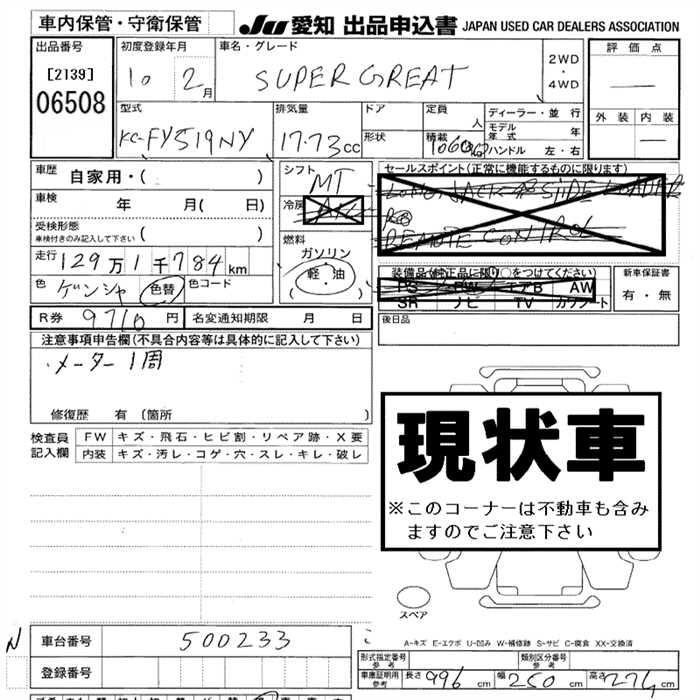 車内保管・守衛保管
JU 愛知 出品申込書 JAPAN USED CAR DEALERS ASSOCIATION
出品番号
[2139]
06508
初度登録年月
10 2月
車名・グレード
SUPER GREAT
2WD
・
4WD
評価点
外装 内装
型式
KC-FY519NY
排気量
17.73cc
ドア
形状
定員 人
積載
ディーラー・並行
モデル年式 年
ハンドル 左・右
車歴 自家用・( )
車検 年 月( 日)
受検形態
車検付きのみ記入して下さい ( )
走行 129万1千784km
色 ゲンシャ 色替 色コード
シフト
MT
冷房 AC
燃料
ガソリン
軽・油
( )
セールスポイント(正常に機能するものに限ります)
REMOTE CONTROL
装備品(純正品に限り○をつけてください)
PS PW エアB AW
SR ナビ TV カワシート
新車保証書
有・無
R券 9710円 名変通知期限 月 日
後日品
注意事項申告欄(不具合内容等は具体的に記入して下さい)
メーター1周
修復歴 有 (箇所 )
検査員記入欄
FW キズ・飛石・ヒビ割・リペア跡・X要
内装 キズ・汚レ・コゲ・穴・スレ・キレ・破レ
現状車
※このコーナーは不動車も含み
ますのでご注意下さい
スペア
A-キズ E-エクボ U-凹み W-補修跡 S-サビ C-腐食 XX-交換済
N
車台番号 500233
登録番号
形式指定番号 参考
類別区分番号 参考
車庫証明用 参考 長さ 996cm 幅 250cm 高さ 274cm